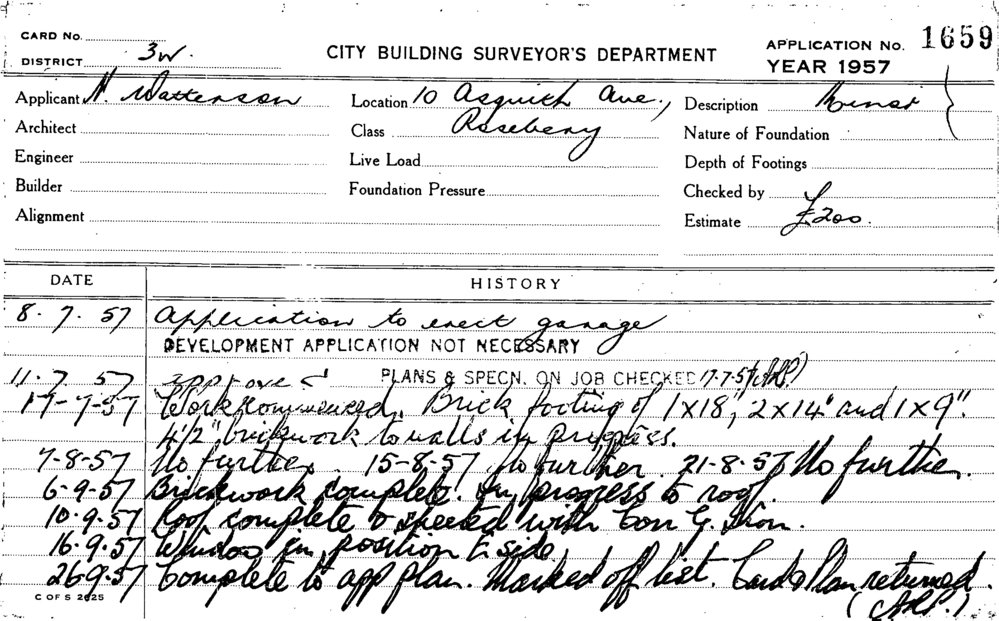 CARD No.
DISTRICT 3W.
CITY BUILDING SURVEYOR'S DEPARTMENT
APPLICATION No. 1659
YEAR 1957
Applicant N. Watterson
Location 10 Asquith Ave.,
Description Minor
Architect
Class Rosebery
Nature of Foundation
Engineer
Live Load
Depth of Footings
Builder
Foundation Pressure
Checked by
Alignment
Estimate £200.
DATE HISTORY
8. 7. 57 Application to erect garage
DEVELOPMENT APPLICATION NOT NECESSARY
11. 7 57 approved PLANS & SPECN. ON JOB CHECKED 17-7-57
17-7-57 Work commenced. Brick footing of 1x18", 2x14" and 1x9".
4½" brickwork to walls in progress.
7-8-57 No further. 15-8-57 No further. 21-8-57 No further.
6-9-57 Brickwork complete. In progress to roof.
10.9.57 Roof complete & sheeted with Corr G. Iron.
16.9.57 Window in position to side
26.9.57 Complete to app plan. Marked off list. Card & Plan returned.
C OF S 2625